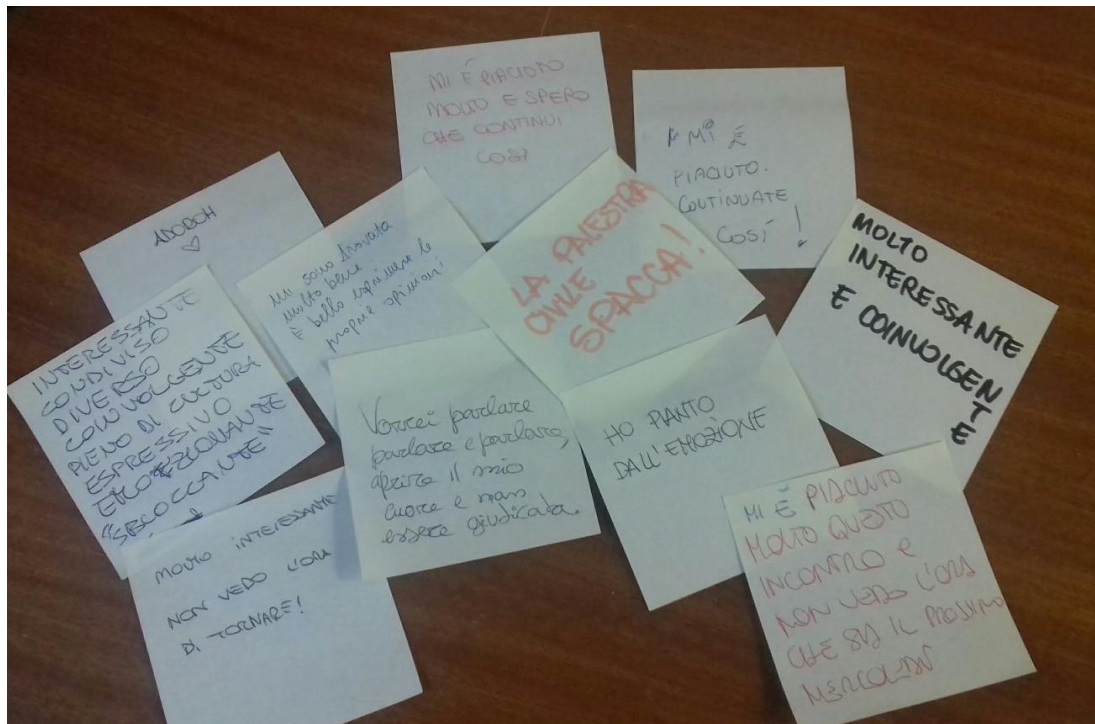 MI È PIACIUTO
MOLTO E SPERO
CHE CONTINUI
COSÌ
MI È
PIACIUTO.
CONTINUATE
COSÌ!
ADOROH
♡
Mi sono trovata
molto bene
È bello esprimere le
proprie opinioni
LA PALESTRA
CIVILE
SPACCA!
MOLTO
INTERESSANTE
E COINVOLGENTE
INTERESSANTE
CONDIVISO
DIVERSO
COINVOLGENTE
PIENO DI CULTURA
ESPRESSIVO
EMOZIONANTE
Vorrei parlare
parlare e parlare,
aprire il mio
cuore e non
essere giudicata.
HO PIANTO
DALL'EMOZIONE
MOLTO INTERESSANTE
NON VEDO L'ORA
DI TORNARE!
MI È PIACIUTO
MOLTO QUESTO
INCONTRO e
NON VEDO L'ORA
CHE SIA IL PROSSIMO
MERCOLEDÌ